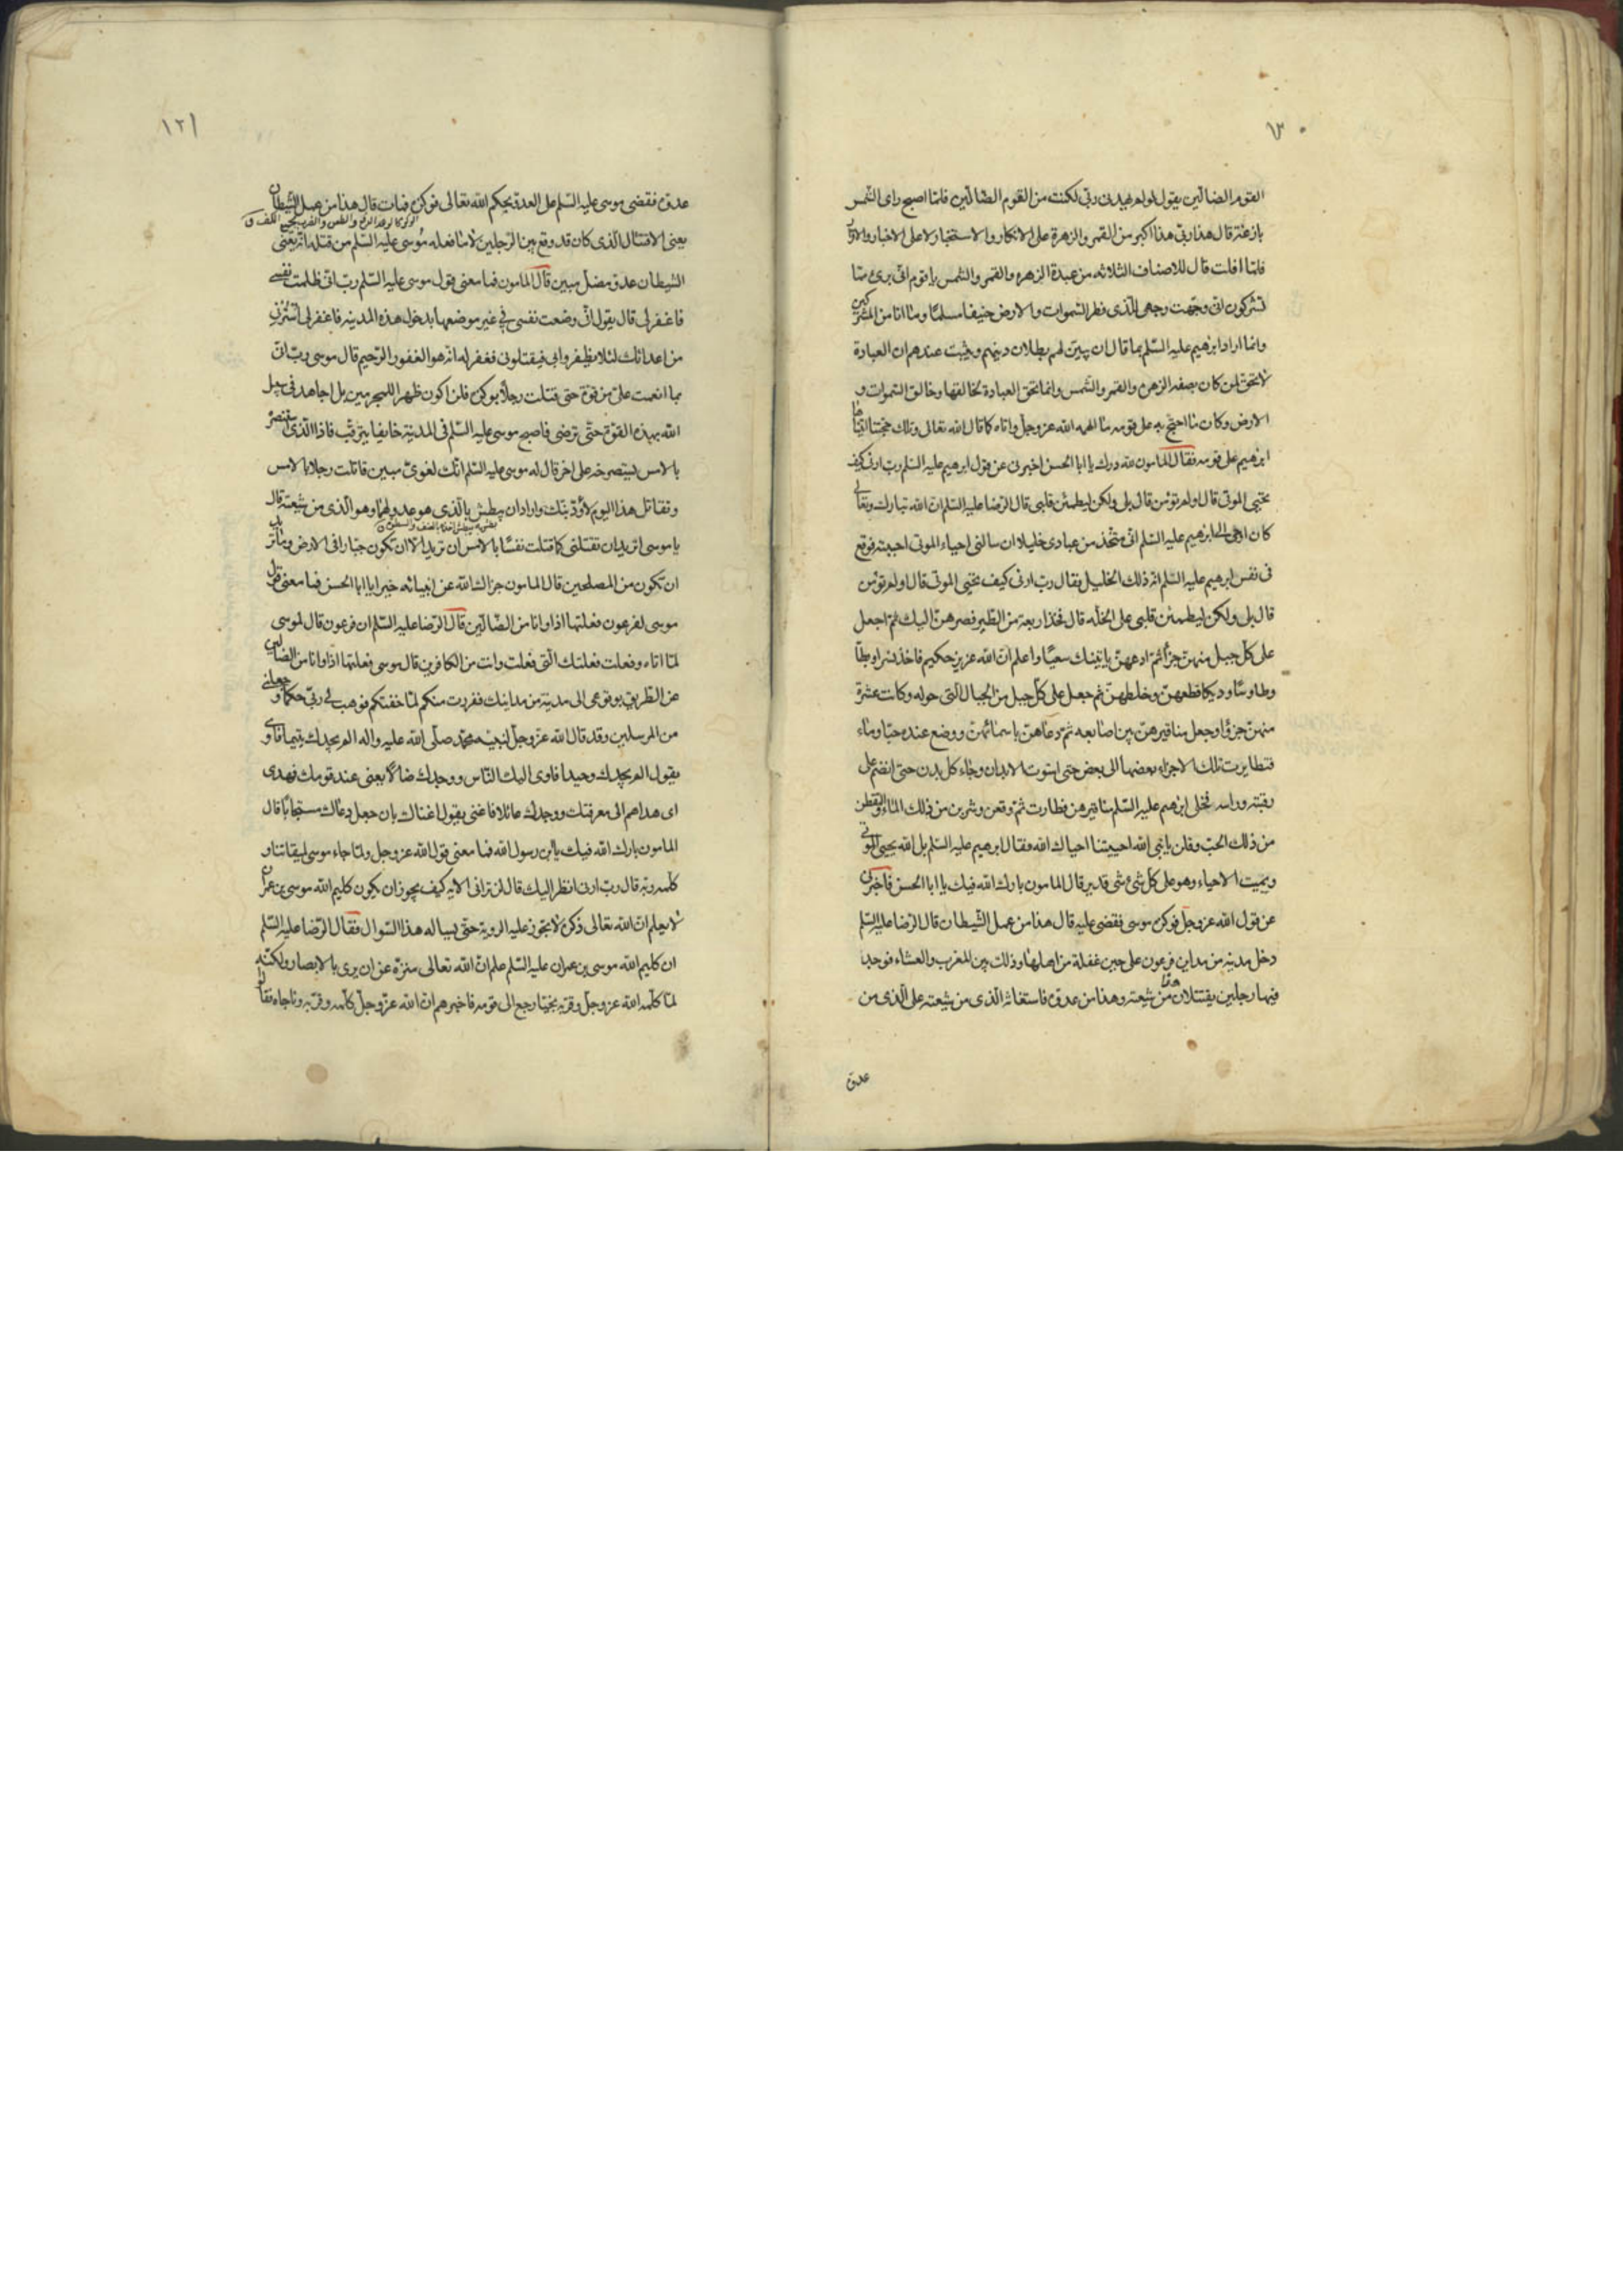 ١٣٠
القوم الضالين يقول لو لم يهدنى ربى لكنت من القوم الضالين فلما اصبح راى الشمس
بازغة قال هذا ربى هذا اكبر من القمر والزهرة على الانكار والاستخبار لا على الاخبار والاقرار
فلما افلت قال للاصناف الثلاثه من عبدة الزهره والقمر والشمس يا قوم انى برئ مما
تشركون انى وجهت وجهى للذى فطر السموات والارض حنيفا مسلما وما انا من المشركين
وانما اراد ابرهيم عليه السلم بما قال ان يبين لهم بطلان دينهم ويثبت عندهم ان العبادة
لا تحق لمن كان بصفه الزهره والقمر والشمس وانما تحق العبادة لخالقها وخالق السموات و
الارض وكان ما احتج به على قومه مما الهمه الله عز وجل واتاه كما قال الله تعالى وتلك حجتنا اتيناها
ابرهيم على قومه فقال المامون لله درك يا ابا الحسن اخبرنى عن قول ابرهيم عليه السلم رب ارنى كيف
تحيى الموتى قال اولم تؤمن قال بلى ولكن ليطمئن قلبى قال الرضا عليه السلم ان الله تبارك وتعالى
كان اوحى الى ابرهيم عليه السلم انى متخذ من عبادى خليلا ان سالنى احياء الموتى اجبته فوقع
فى نفس ابرهيم عليه السلم انه ذلك الخليل فقال رب ارنى كيف تحيى الموتى قال اولم تؤمن
قال بلى ولكن ليطمئن قلبى على الخله قال فخذ اربعة من الطير فصرهن اليك ثم اجعل
على كل جبل منهن جزأ ثم ادعهن ياتينك سعيا واعلم ان الله عزيز حكيم فاخذ نسرا وبطا
وطاوسا وديكا فقطعهن وخلطهن ثم جعل على كل جبل من الجبال التى حوله وكانت عشرة
منهن جزؤا وجعل مناقيرهن بين اصابعه ثم دعاهن باسمائهن ووضع عنده حبا وماء
فتطايرت تلك الاجزاء بعضها الى بعض حتى استوت الابدان وجاء كل بدن حتى انضم على
رقبته وراسه فخلى ابرهيم عليه السلم مناقيرهن فطارت ثم وقعن وشربن من ذلك الماء والتقطن
من ذلك الحب وقلن يا نبى الله احييتنا احياك الله فقال ابرهيم عليه السلم بل الله يحيى الموتى
ويميت الاحياء وهو على كل شئ قدير قال المامون بارك الله فيك يا ابا الحسن فاخبرنى
عن قول الله عز وجل فوكزه موسى فقضى عليه قال هذا من عمل الشيطان قال الرضا عليه السلم
دخل مدينه من مداين فرعون على حين غفلة من اهلها وذلك بين المغرب والعشاء فوجد
فيها رجلين يقتتلان هذا من شيعته وهذا من عدوه فاستغاثه الذى من شيعته على الذى من
عدوه
١٢١
عدوه فقضى موسى عليه السلم على العدو بحكم الله تعالى فوكزه فمات قال هذا من عمل الشيطان
يعنى الاقتتال الذى كان قد وقع بين الرجلين لا ما فعله موسى عليه السلم من قتله انه يعنى
الشيطان عدو مضل مبين قال المامون فما معنى قول موسى عليه السلم رب انى ظلمت نفسى
فاغفر لى قال يقول انى وضعت نفسى فى غير موضعها بدخول هذه المدينه فاغفر لى استرنى
من اعدائك لئلا يظفروا بى فيقتلونى فغفر له انه هو الغفور الرحيم قال موسى رب
بما انعمت على من قوة حتى قتلت رجلا بوكزه فلن اكون ظهيرا للمجرمين بل اجاهد فى سبيل
الله بهذه القوة حتى ترضى فاصبح موسى عليه السلم فى المدينة خايفا يترقب فاذا الذى استنصره
بالامس يستصرخه على اخر قال له موسى عليه السلم انك لغوى مبين قاتلت رجلا بالامس
وتقاتل هذا اليوم لاؤدبنك واراد ان يبطش بالذى هو عدو لهما وهو الذى من شيعته قال
يا موسى اتريد ان تقتلنى كما قتلت نفسا بالامس ان تريد الا ان تكون جبارا فى الارض وما تريد
ان تكون من المصلحين قال المامون جزاك الله عن انبيائه خيرا يا ابا الحسن فما معنى قول
موسى لفرعون فعلتها اذا وانا من الضالين قال الرضا عليه السلم ان فرعون قال لموسى
لما اتاه وفعلت فعلتك التى فعلت وانت من الكافرين قال موسى فعلتها اذا وانا من الضالين
عن الطريق بوقوعى الى مدينة من مداينك ففررت منكم لما خفتكم فوهب لى ربى حكما وجعلنى
من المرسلين وقد قال الله عز وجل لنبيه محمد صلى الله عليه واله الم يجدك يتيما فاوى
يقول الم يجدك وحيدا فاوى اليك الناس ووجدك ضالا يعنى عند قومك فهدى
اى هداهم الى معرفتك ووجدك عائلا فاغنى يقول اغناك بان جعل دعاك مستجابا قال
المامون بارك الله فيك يا ابن رسول الله فما معنى قول الله عز وجل ولما جاء موسى لميقاتنا و
كلمه ربه قال رب ارنى انظر اليك قال لن ترانى الايه كيف يجوز ان يكون كليم الله موسى بن عمران
لا يعلم ان الله تعالى ذكره لا تجوز عليه الروية حتى يساله هذا السوال فقال الرضا عليه السلم
ان كليم الله موسى بن عمران عليه السلم علم ان الله تعالى منزه عن ان يرى بالابصار ولكنه
لما كلمه الله عز وجل وقربه نجيا رجع الى قومه فاخبرهم ان الله عز وجل كلمه وقربه وناجاه فقالوا